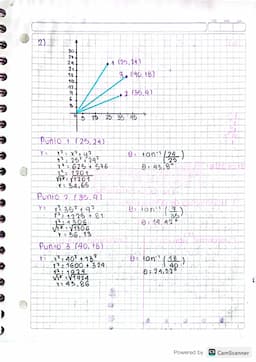 2)
30
27
24
21
18
15
12
9
6
3
1 (25,24)
3 (40,18)
2 (35,9)
5 15 25 35 45
Punto 1 (25,24)
r: r²: x² + y²
r²: 25² + 24²
r²: 625 + 576
r²: 1201
√r²: √1201
r: 34,65
θ: tan⁻¹ (24/25)
θ: 43,8°
Punto 2 (35,9)
r: r²: 35² + 9²
r²: 1225 + 81
r²: 1306
√r²: √1306
r: 36,13
θ: tan⁻¹ (9/35)
θ: 14,42°
Punto 3 (40,18)
r: r²: 40² + 18²
r²: 1600 + 324
r²: 1924
√r²: √1924
r: 43,86
θ: tan⁻¹ (18/40)
θ: 24,22°
Powered by CamScanner